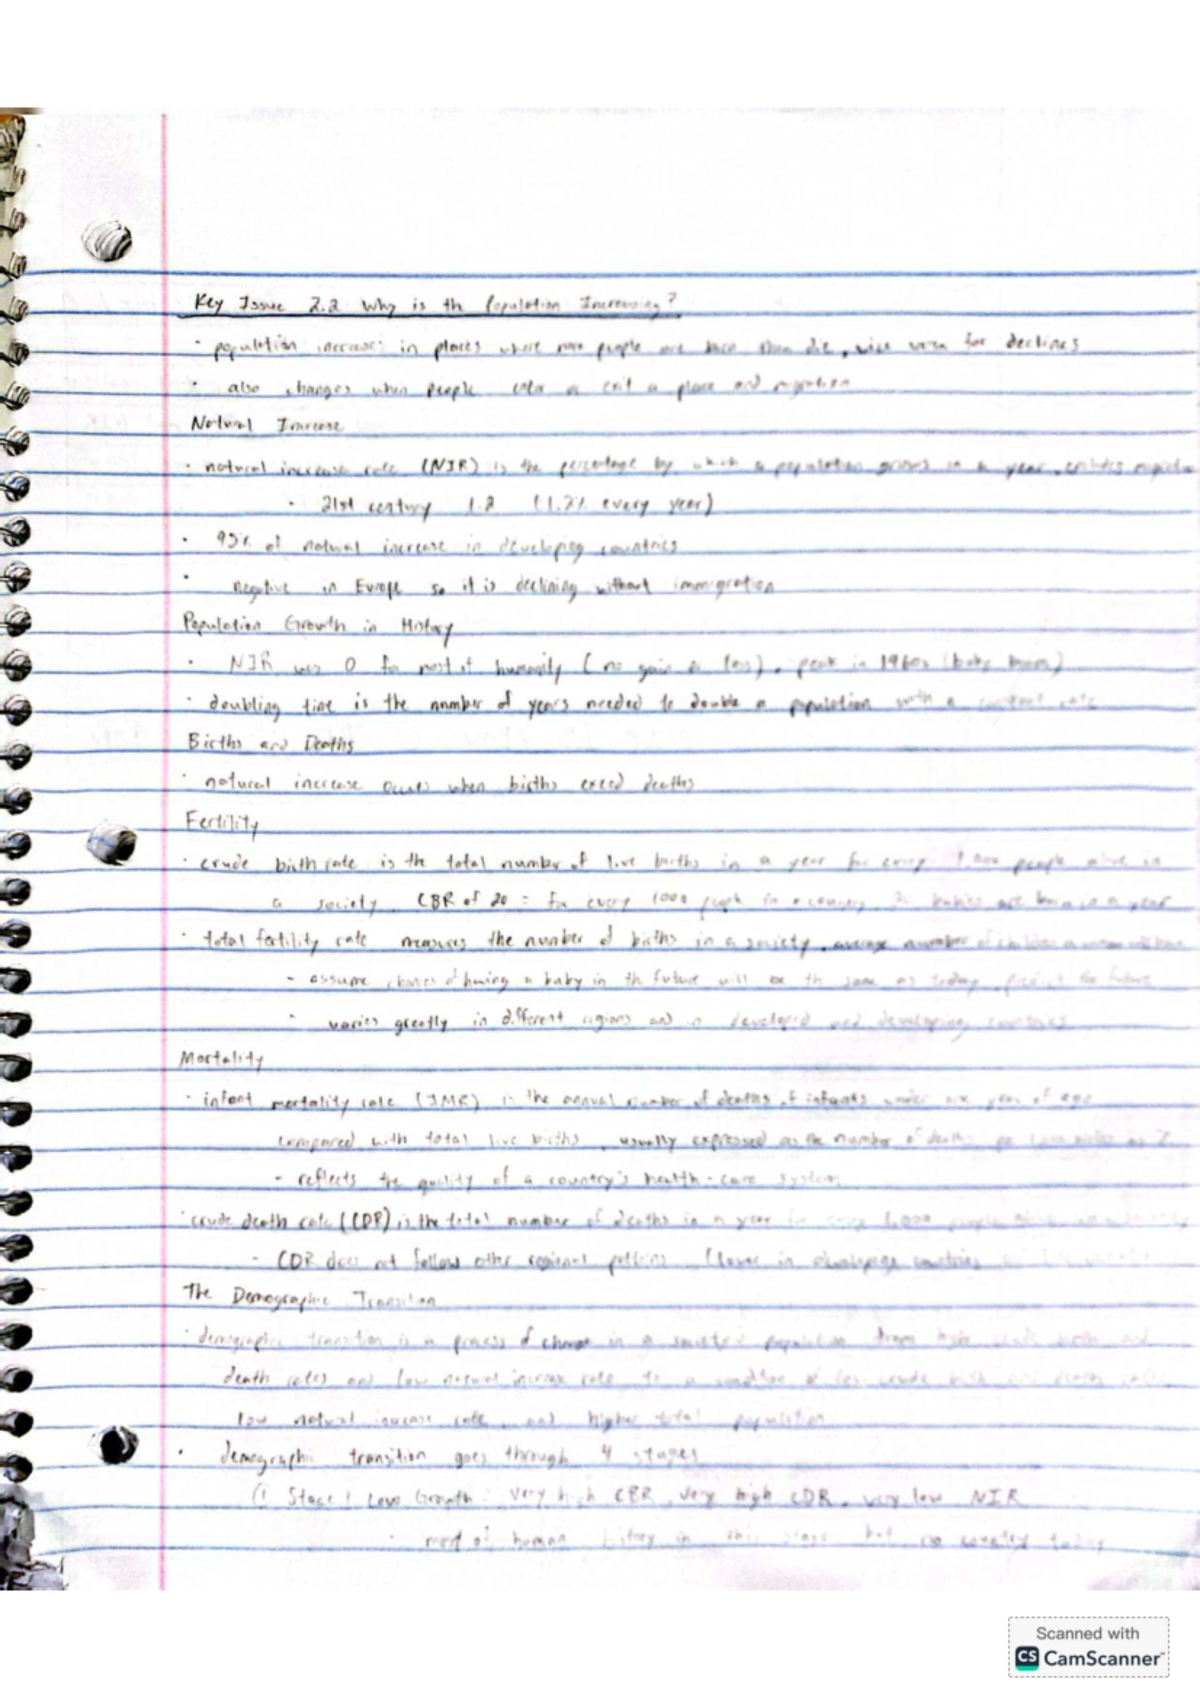 Key Issue 2.2 Why is th Population Increasing?
· population increases in places where more people are born than die, vice versa for declines
· also changes when people enter or exit a place and migration
Natural Increase
· natural increase rate (NIR) is the percentage by which a population grows in a year, excludes
· 21st century 1.2 (1.2% every year)
· 95% of natural increase in developing countries
· negative in Europe so it is declining without immigration
Population Growth in History
· NIR was 0 for most of humanity (no gain or loss), peak in 1960s (baby boom)
· doubling time is the number of years needed to double a population with a constant rate
Births and Deaths
· natural increase occurs when births exeed deaths
Fertility
· crude birth rate is the total number of live births in a year for every 1,000 people alive in
a society CBR of 20 = for every 1000 people in a country, 20 babies are born in a year
· total fertility rate measures the number of births in a society, average number of children a woman will have
- assume chances of having a baby in th future will be th same as today, predict the future
· varies greatly in different regions and in developed and developing countries
Mortality
· infant mortality rate (IMR) is the annual number of deaths of infants under one year of age
compared with total live births, usually expressed as the number of deaths
- reflects the quality of a country's health-care system
· crude death rate (CDR) is the total number of deaths in a year for every 1,000 people
- CDR does not follow other regional patterns (lower in developing countries
The Demographic Transition
· demographic transition is a process of change in a society's population from high crude birth and
death rates and low natural increase rate to a condition of low crude birth and death rates
low natural increase rate, and higher total population
· demographic transition goes through 4 stages
① Stage 1 Low Growth: very high CBR, very high CDR, very low NIR
· most of human history in this stage but no country today
Scanned with
CS CamScanner